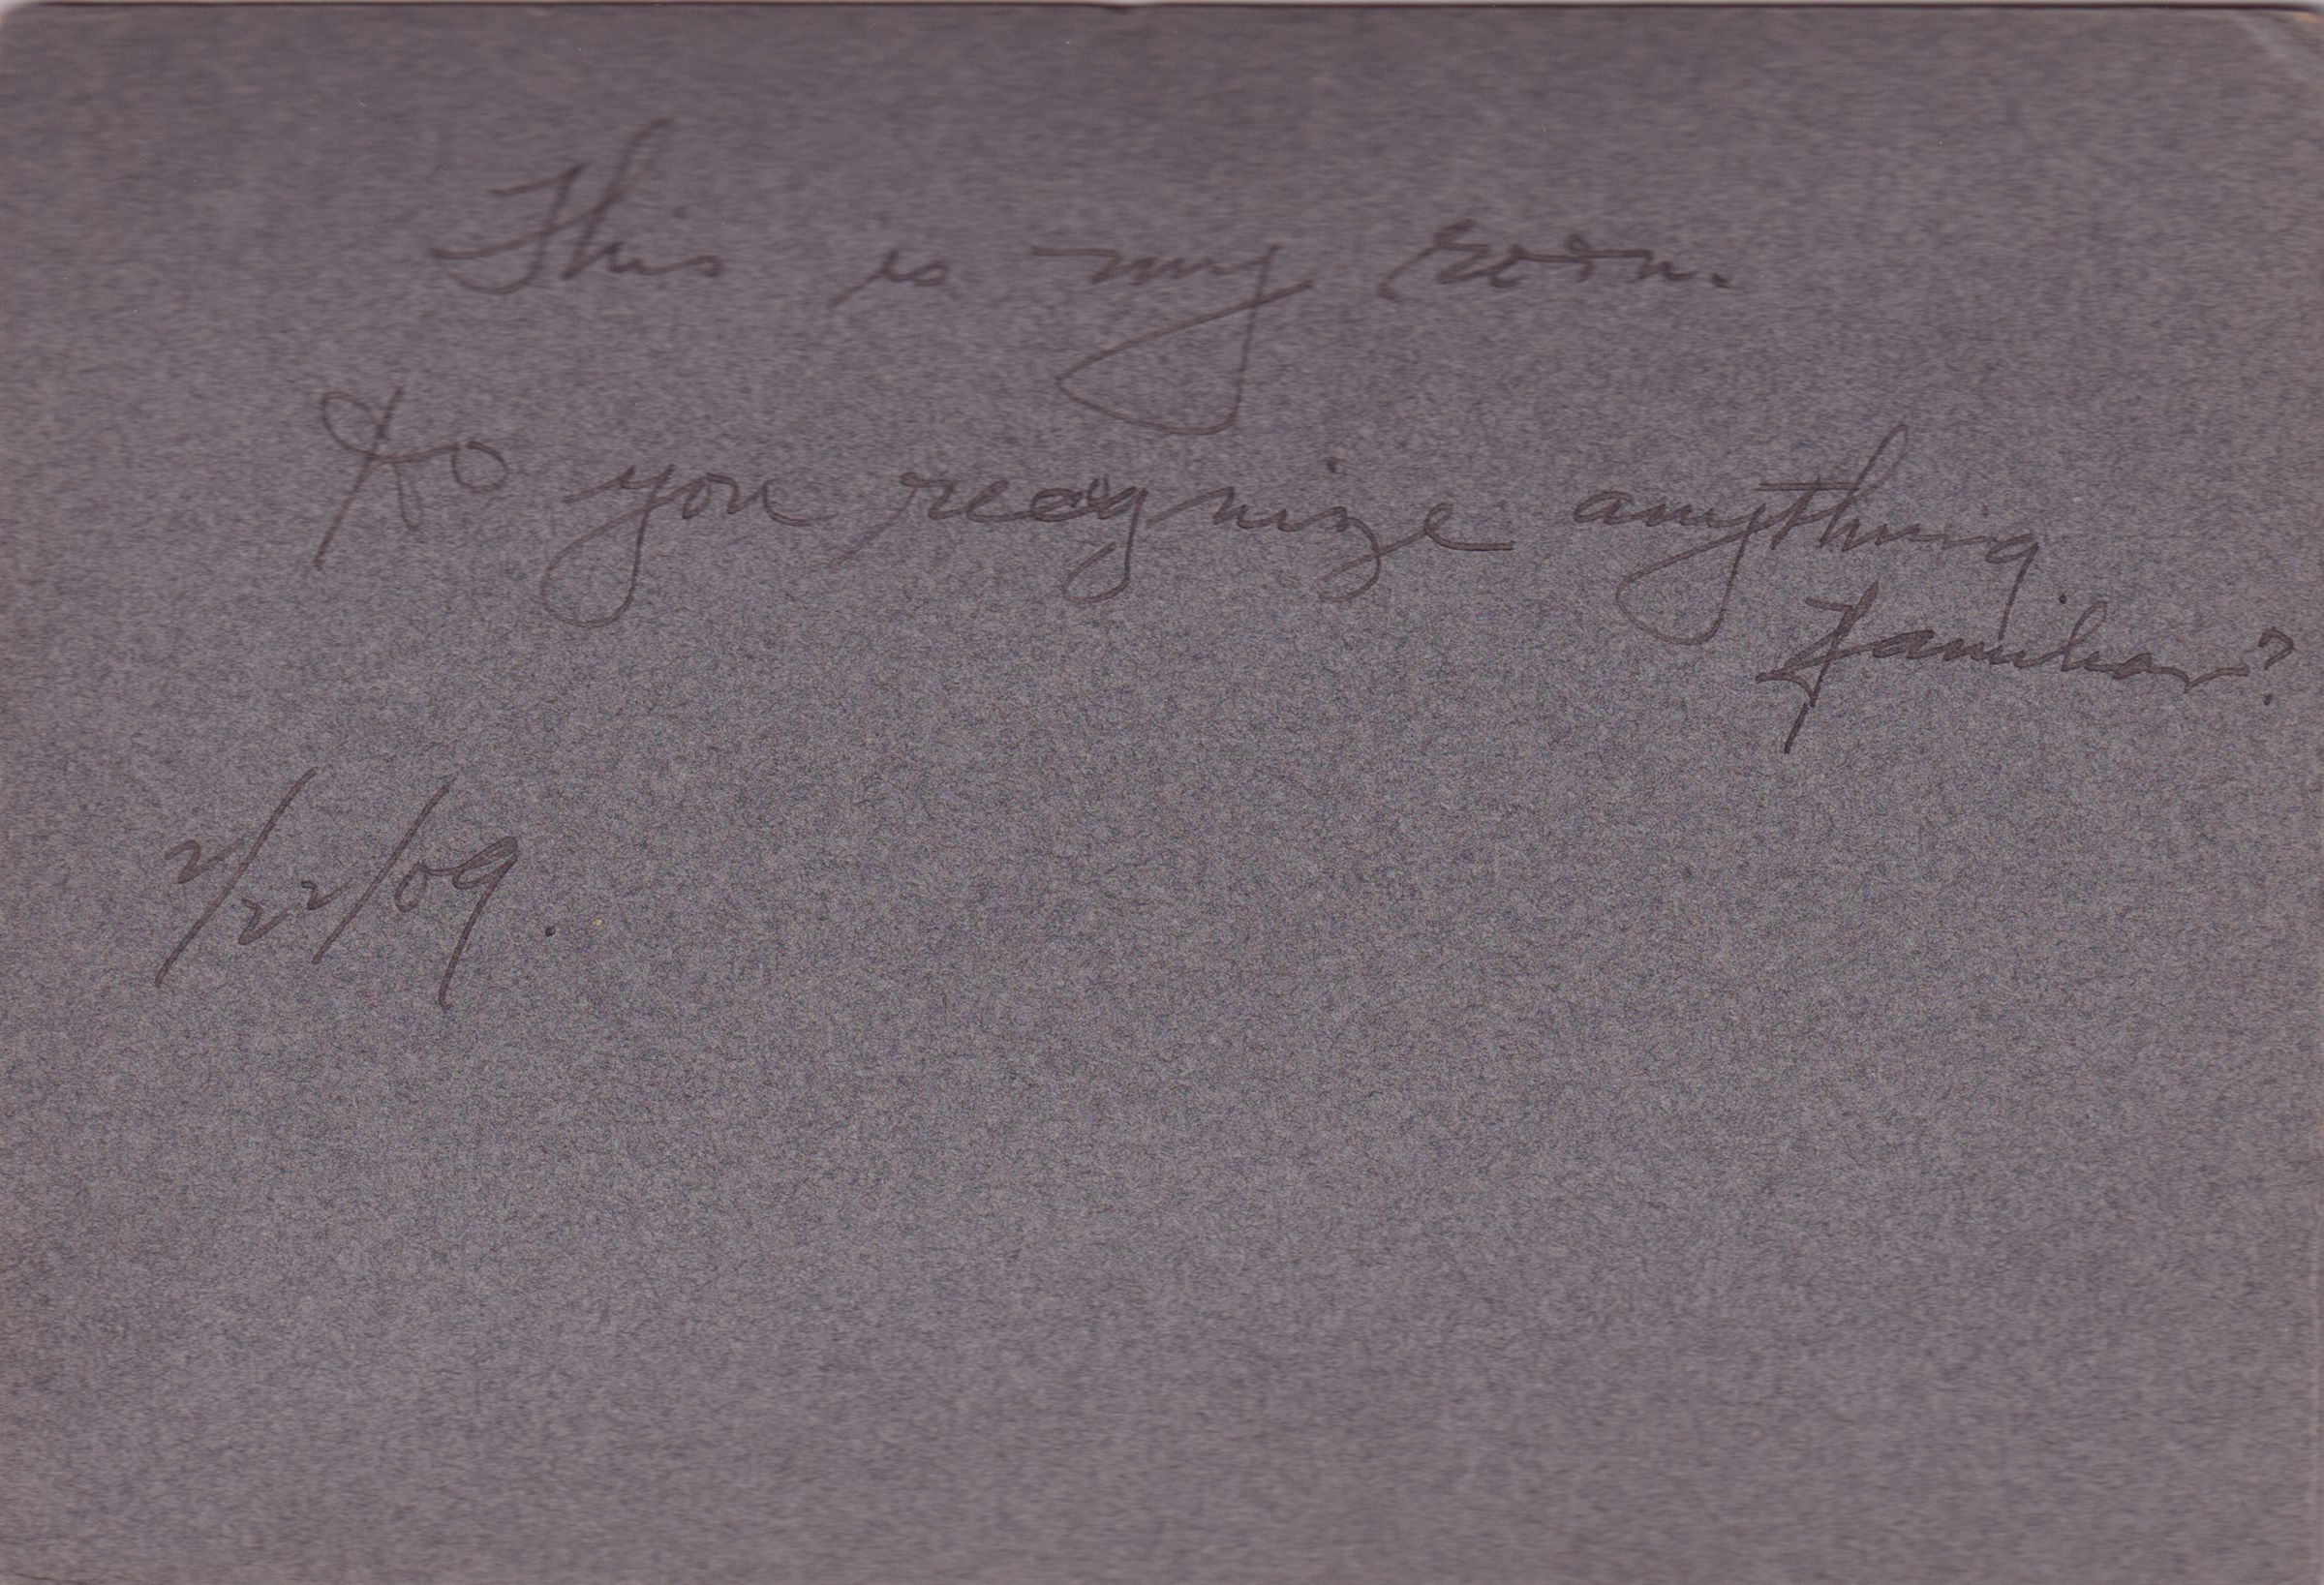 This is my room.
Do you recognize anything
familiar?
2/22/09.